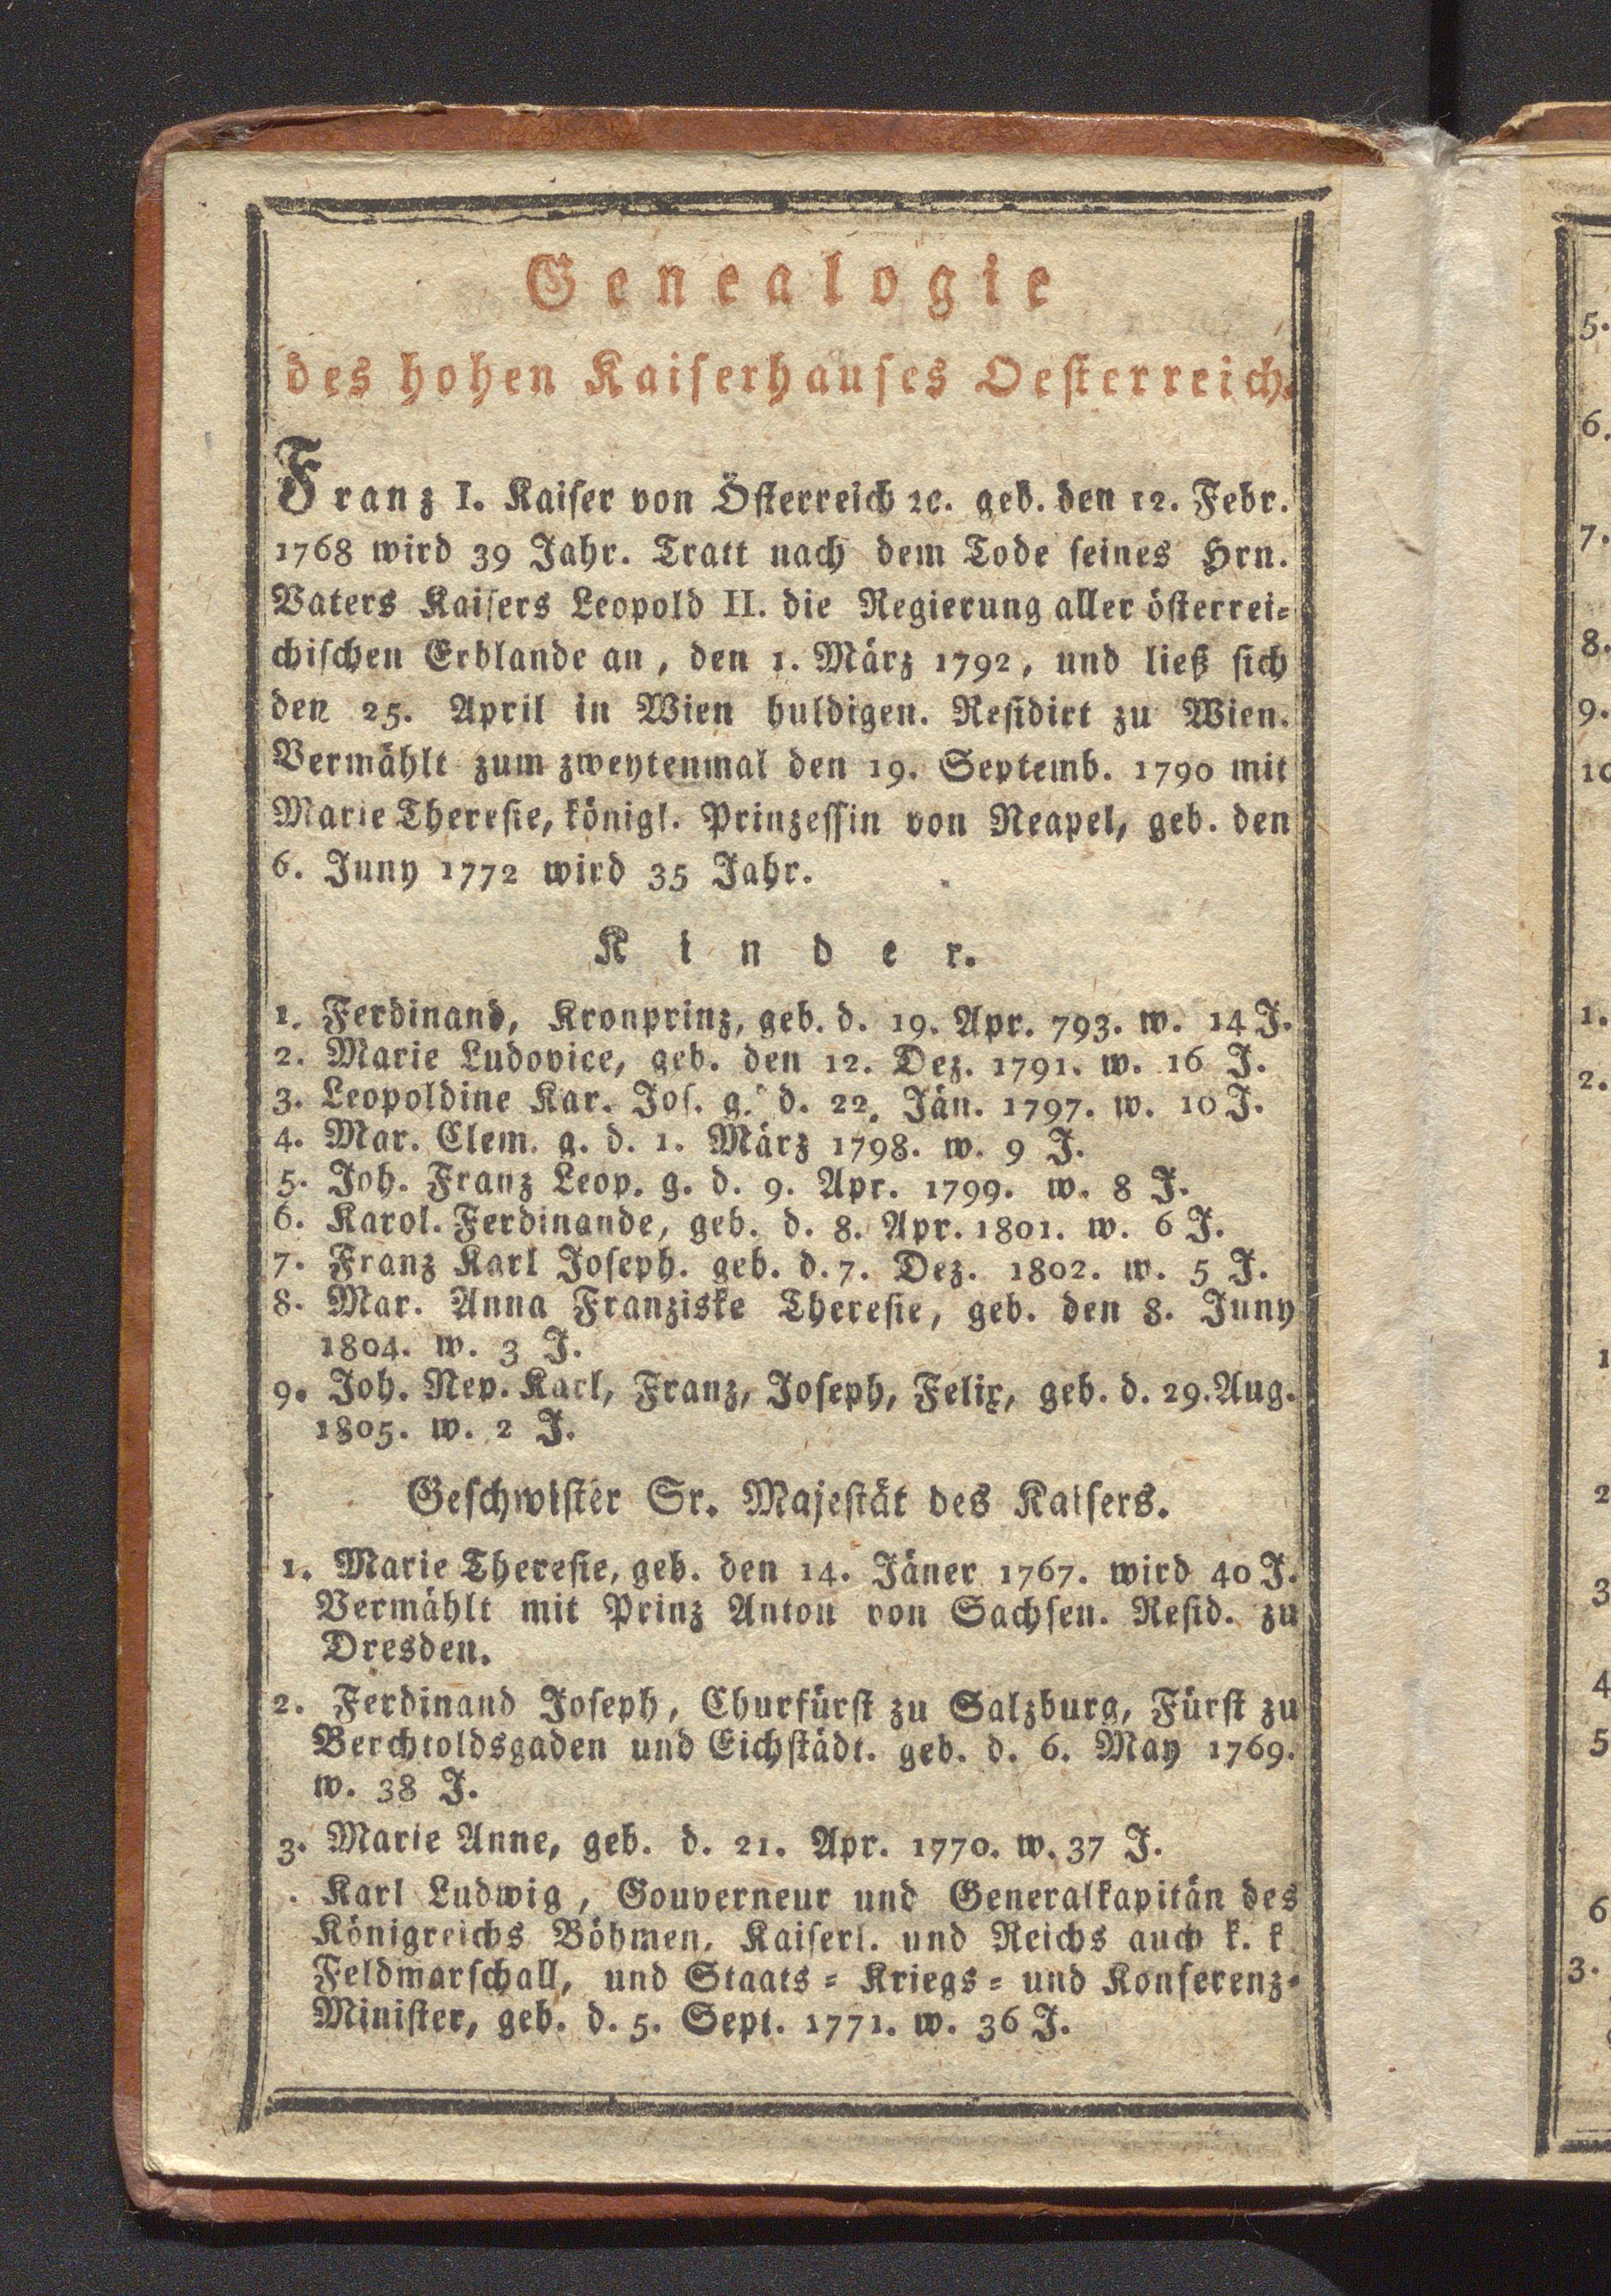 Genealogie
des hohen Kaiserhauses Oesterreich.
Franz I. Kaiser von Österreich ꝛc. geb. den 12. Febr.
1768 wird 39 Jahr. Tratt nach dem Tode seines Hrn.
Vaters Kaisers Leopold II. die Regierung aller österrei=
chischen Erblande an, den 1. März 1792, und ließ sich
den 25. April in Wien huldigen. Residirt zu Wien.
Vermählt zum zweytenmal den 19. Septemb. 1790 mit
Marie Theresie, königl. Prinzessin von Neapel, geb. den
6. Juny 1772 wird 35 Jahr.
Kinder.
1. Ferdinand, Kronprinz, geb. d. 19. Apr. 793. w. 14 J.
2. Marie Ludovice, geb. den 12. Dez. 1791. w. 16 J.
3. Leopoldine Kar. Jos. g. d. 22. Jän. 1797. w. 10 J.
4. Mar. Clem. g. d. 1. März 1798. w. 9 J.
5. Joh. Franz Leop. g. d. 9. Apr. 1799. w. 8 J.
6. Karol. Ferdinande, geb. d. 8. Apr. 1801. w. 6 J.
7. Franz Karl Joseph. geb. d. 7. Dez. 1802. w. 5 J.
8. Mar. Anna Franziske Theresie, geb. den 8. Juny
1804. w. 3 J.
9. Joh. Nep. Karl, Franz, Joseph, Felix, geb. d. 29. Aug.
1805. w. 2 J.
Geschwister Sr. Majestät des Kaisers.
1. Marie Theresie, geb. den 14. Jäner 1767. wird 40 J.
Vermählt mit Prinz Anton von Sachsen. Resid. zu
Dresden.
2. Ferdinand Joseph, Churfürst zu Salzburg, Fürst zu
Berchtoldsgaden und Eichstädt. geb. d. 6. May 1769.
w. 38 J.
3. Marie Anne, geb. d. 21. Apr. 1770. w. 37 J.
. Karl Ludwig, Gouverneur und Generalkapitän des
Königreichs Böhmen, Kaiserl. und Reichs auch k. k
Feldmarschall, und Staats = Kriegs = und Konferenz=
Minister, geb. d. 5. Sept. 1771. w. 36 J.
5.
6.
7.
8.
9.
10
1.
2.
1
2
3
4
5
6
3.